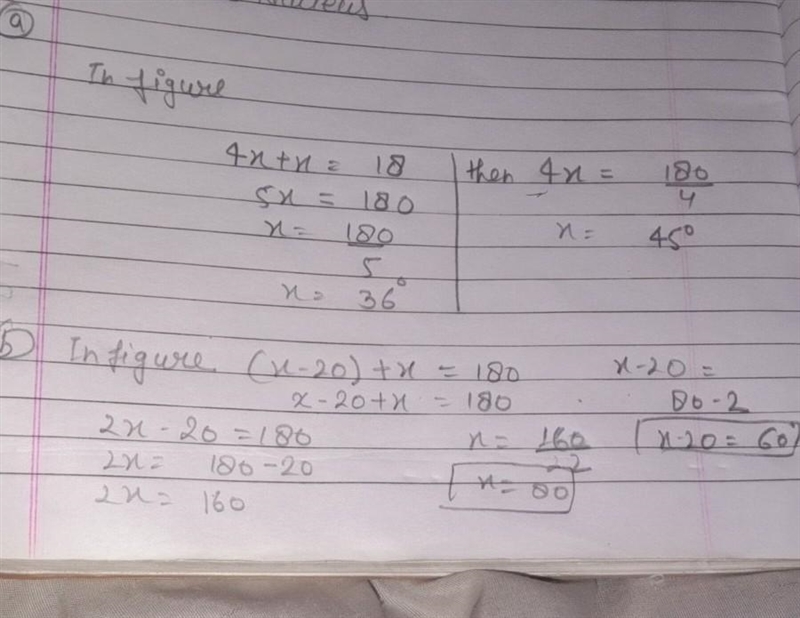 a
In figure
4x+x = 18
5x = 180
x = 180/5
x = 36°
then 4x = 180/4
x = 45°
b In figure (x-20)+x = 180
x-20+x = 180
2x - 20 = 180
2x = 180-20
2x = 160
x = 160/2
x = 80
x-20 =
80-2
x-20 = 60°